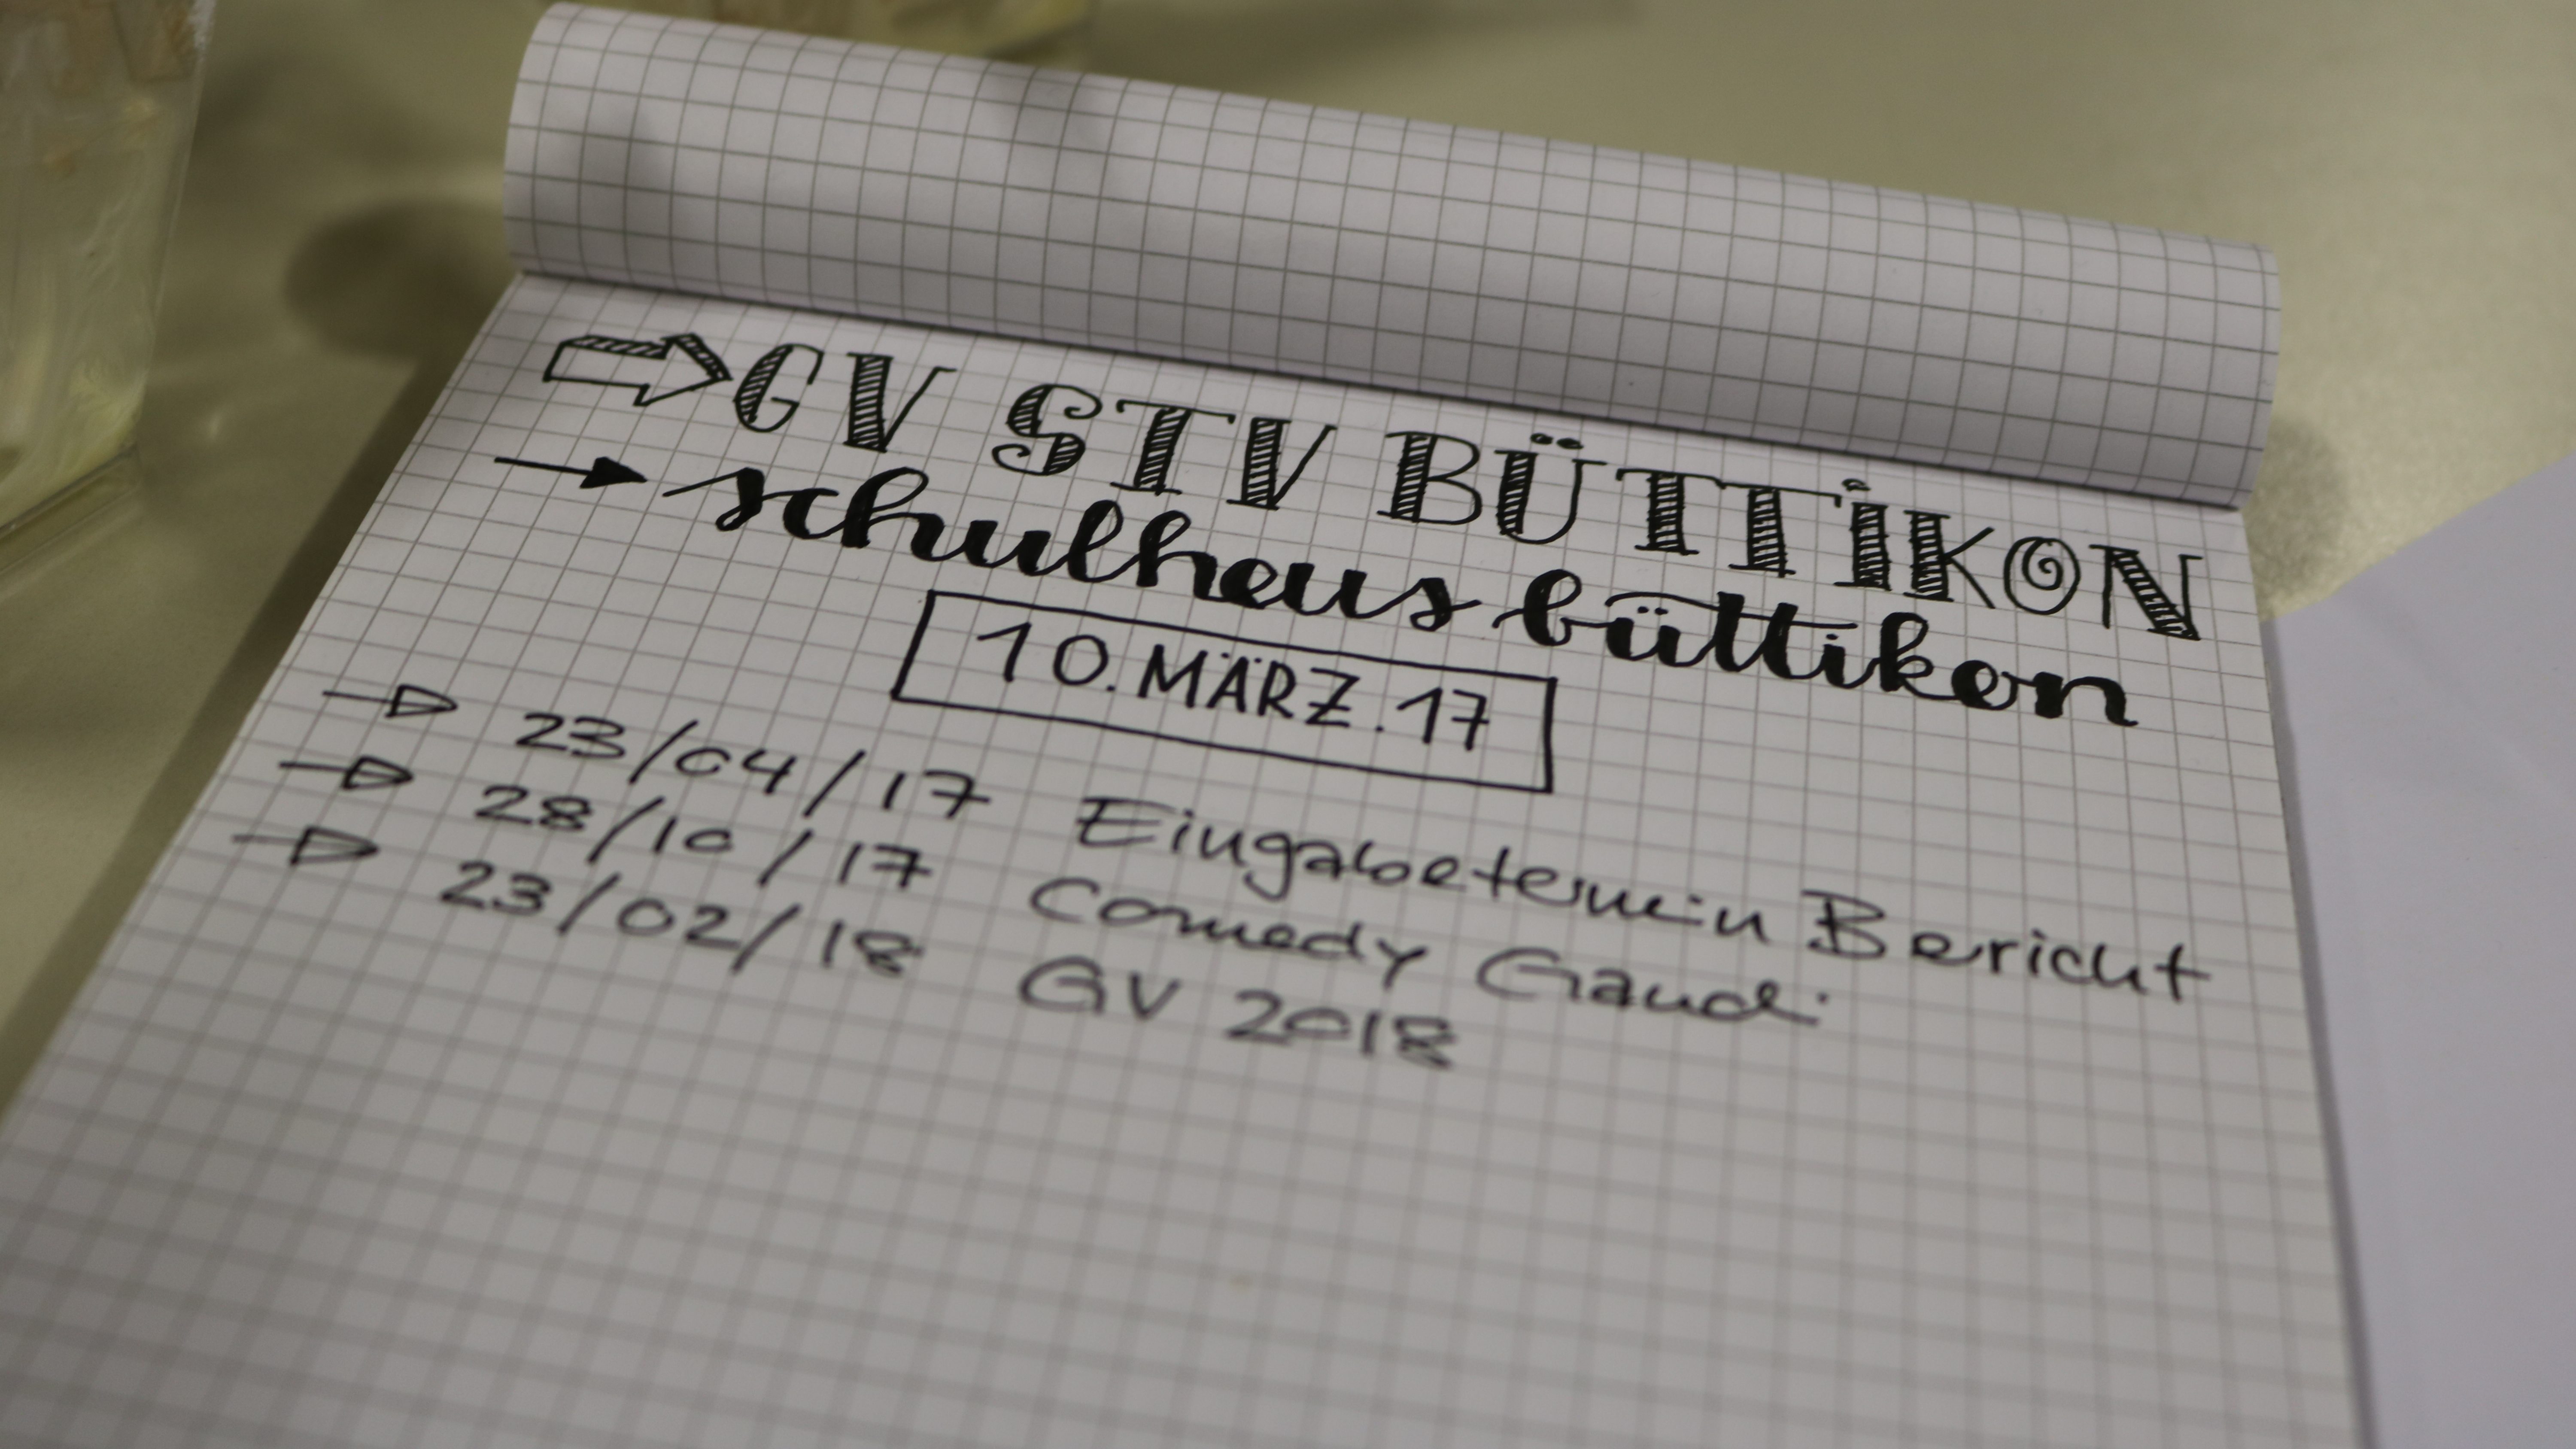 GV STV BÜTTIKON
schulhaus büttikon
10. MÄRZ. 17
23/04/17 Eingabetermin Bericht
28/10/17 Comedy Gaudi
23/02/18 GV 2018